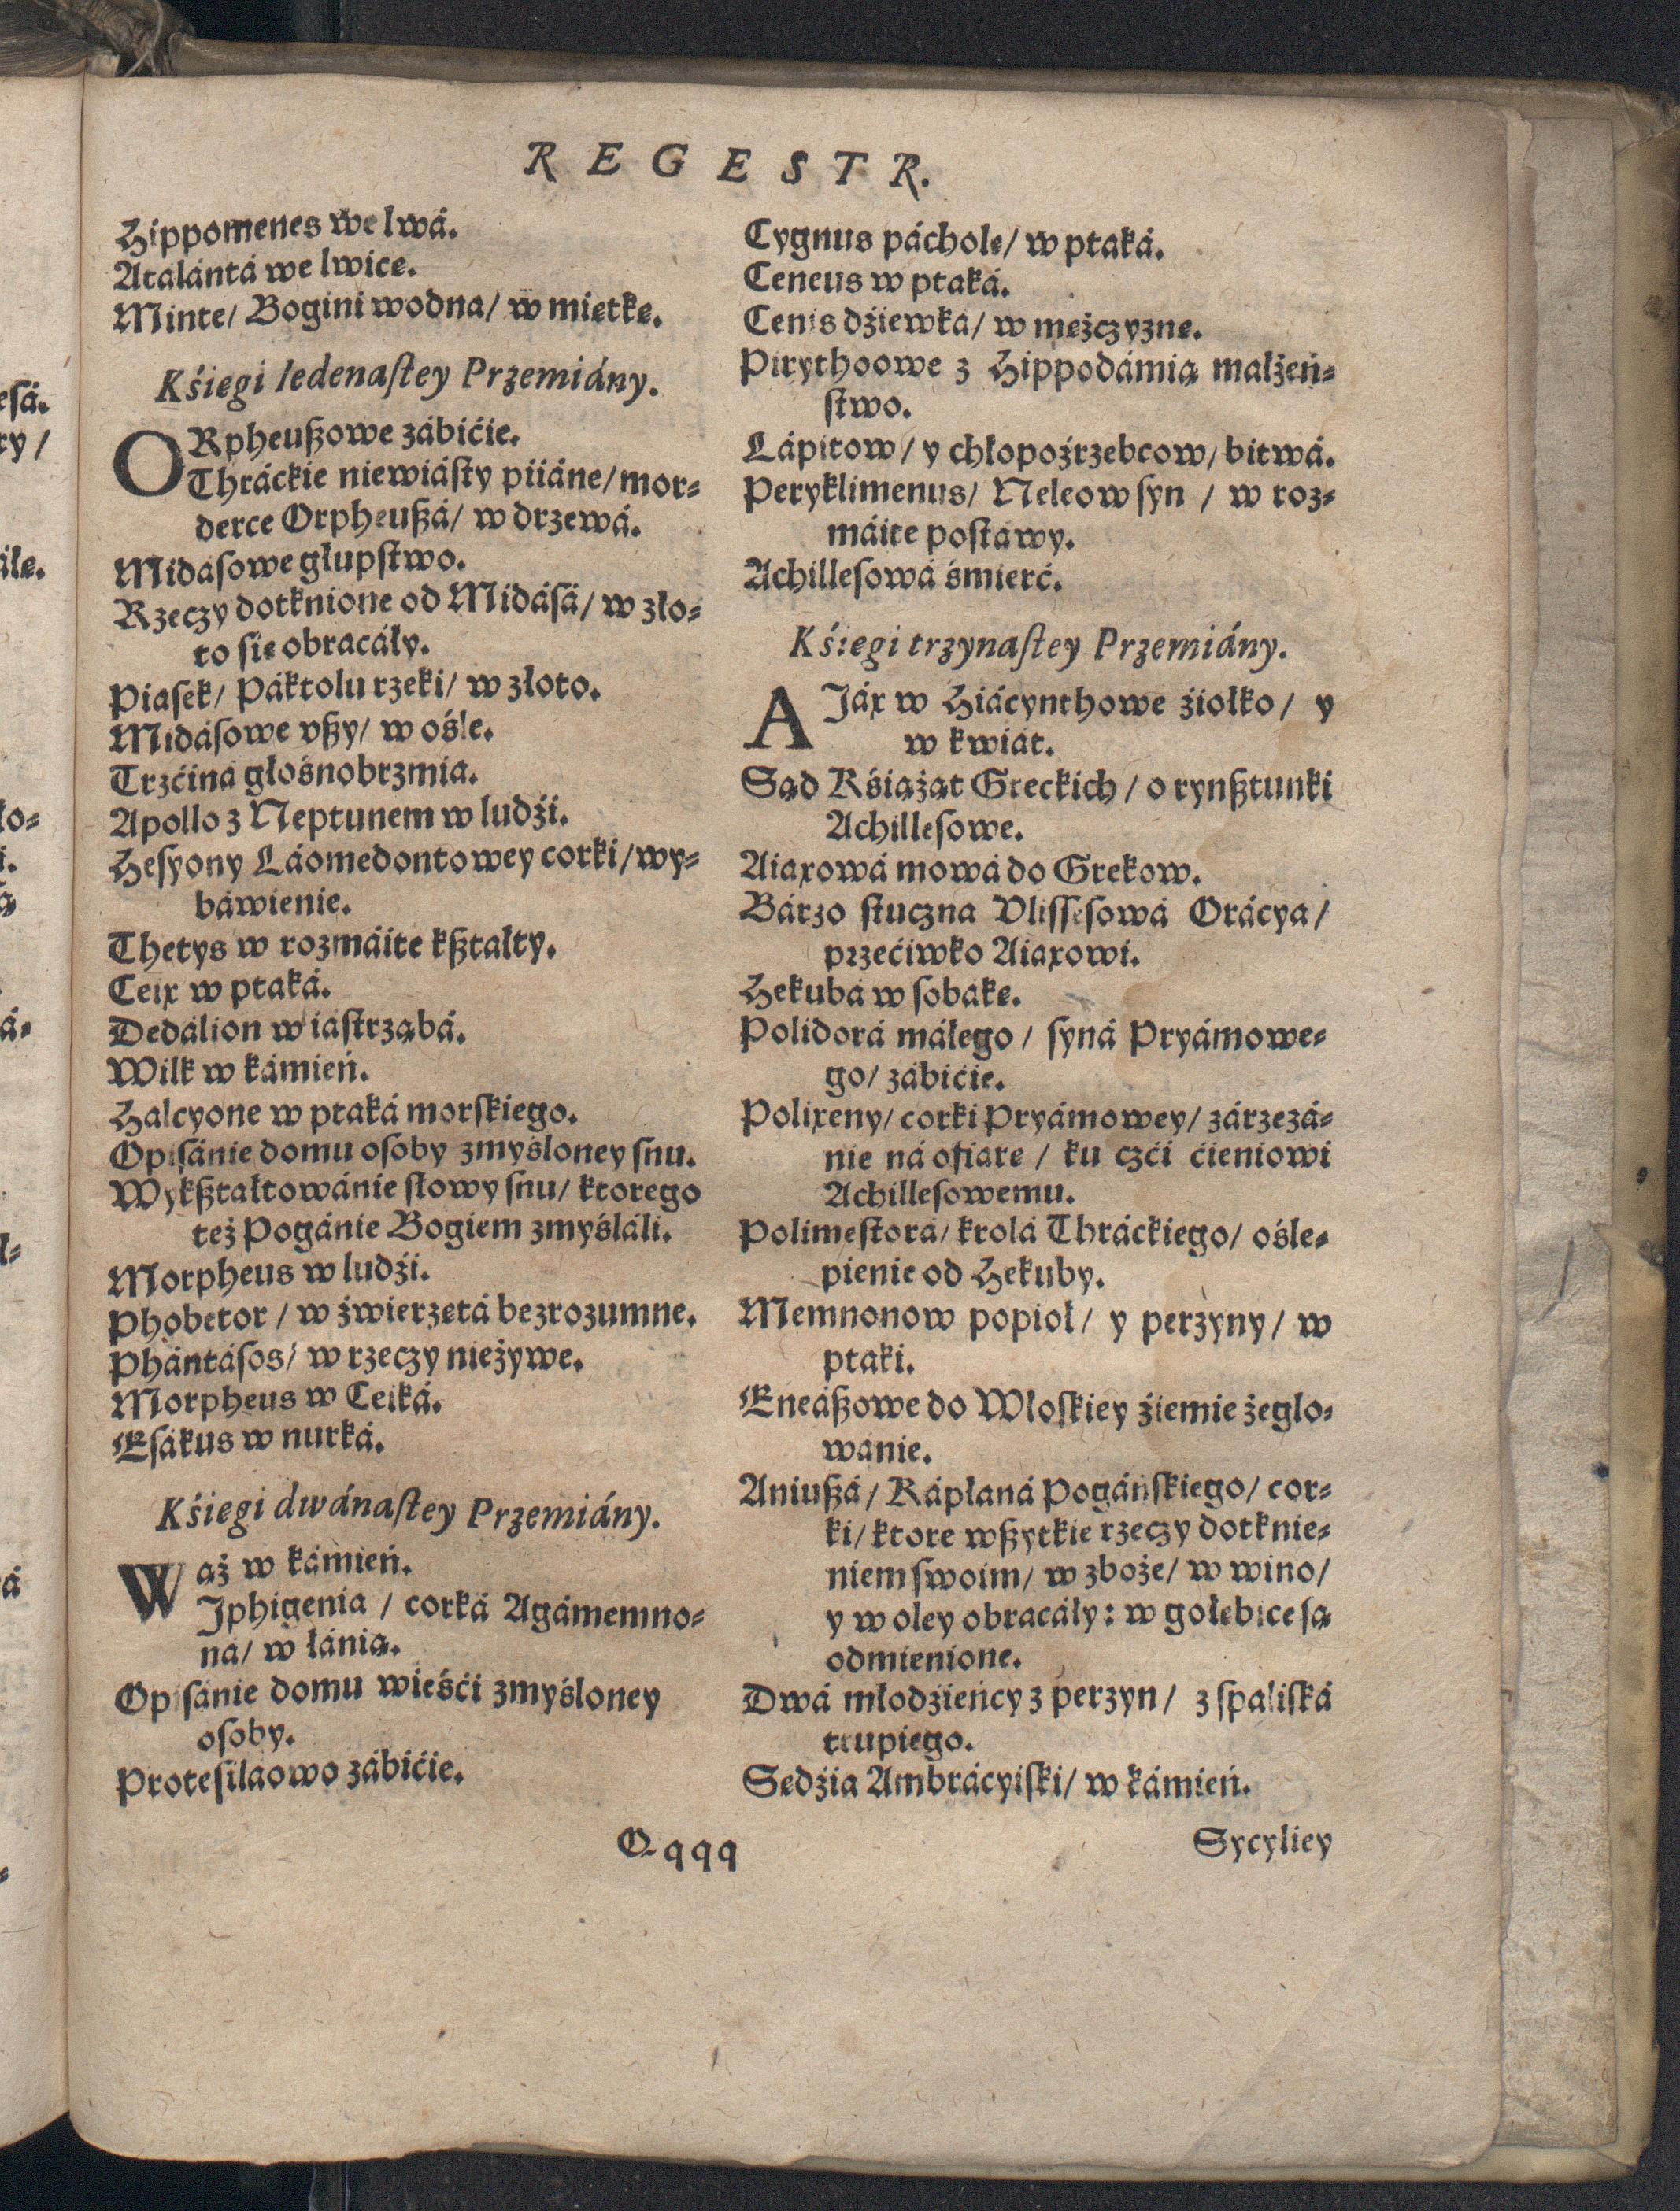 REGESTR.
Hippomenes we lwá.
Atálántá we lwicę.
Minte/ Bogini wodna/ w miętkę.
Kśięgi Iedenaſtey Przemiány.
ORpheuſzowe zábićie.
Thráckie niewiáſty piiáne/ mor⸗
derce Orpheuſzá/ w drzewá.
Midáſowe głupſtwo.
Rzeczy dotknione od Midáſá/ w zło⸗
to ſię obracáły.
Piaſek/ Páktolu rzeki/ w złoto.
Midáſowe vſzy/ w ośle.
Trzćiná głośnobrzmia.
Apollo z Neptunem w ludźi.
Heſyony Láomedontowey corki/ wy⸗
báwienie.
Thetys w rozmáite kſztałty.
Ceix w ptaká.
Dedálion w iáſtrząbá.
Wilk w kámień.
Halcyone w ptaká morſkiego.
Opiſánie domu oſoby zmyśloney ſnu.
Wykſztałtowánie ſłowy ſnu/ ktorego
też Pogánie Bogiem zmyśláli.
Morpheus w ludźi.
Phobetor/ w źwierzętá bezrozumne.
Phántáſos/ w rzeczy nieżywe.
Morpheus w Ceiká.
Eſákus w nurká.
Kśięgi dwánaſtey Przemiány.
Wąż w kámień.
Jphigenia/ corká Agámemno⸗
ná/ w łánią.
Opiſánie domu wieśći zmyśloney
oſoby.
Proteſilaowo zábićie.
Qqqq
Cygnus páchole/ w ptaká.
Ceneus w ptaká.
Cenis dźiewká/ w mężczyznę.
Pirythoowe z Hippodámią małżeń⸗
ſtwo.
Lápitow/ y chłopoźrzebcow/ bitwá.
Peryklimenus/ Neleow ſyn/ w roz⸗
máite poſtáwy.
Achilleſowá śmierć.
Kśięgi trzynaſtey Przemiány.
AJáx w Hiácynthowe źiołko/ y
w kwiát.
Sąd Kśiążąt Greckich/ o rynſztunki
Achilleſowe.
Aiaxowá mowá do Grekow.
Bárzo ſtuczna Vliſſeſowá Orácya/
przećiwko Aiaxowi.
Hekubá w ſobákę.
Polidorá małego/ ſyná Pryámowe⸗
go/ zábićie.
Polixeny/ corki Pryámowey/ zárzezá⸗
nie ná ofiarę/ ku czći ćieniowi
Achilleſowemu.
Polimeſtorá/ krolá Thráckiego/ ośle⸗
pienie od Hekuby.
Memnonow popioł/ y perzyny/ w
ptaki.
Eneáſzowe do Włoſkiey źiemie żeglo⸗
wánie.
Aniuſzá/ Kápłaná Pogáńſkiego/ cor⸗
ki/ ktore wſzytkie rzeczy dotknie⸗
niem ſwoim/ w zboże/ w wino/
y w oley obracáły: w gołębice ſą
odmienione.
Dwá młodźieńcy z perzyn/ z ſpaliſká
trupiego.
Sędźia Ambrácyiſki/ w kámień.
Sycyliey